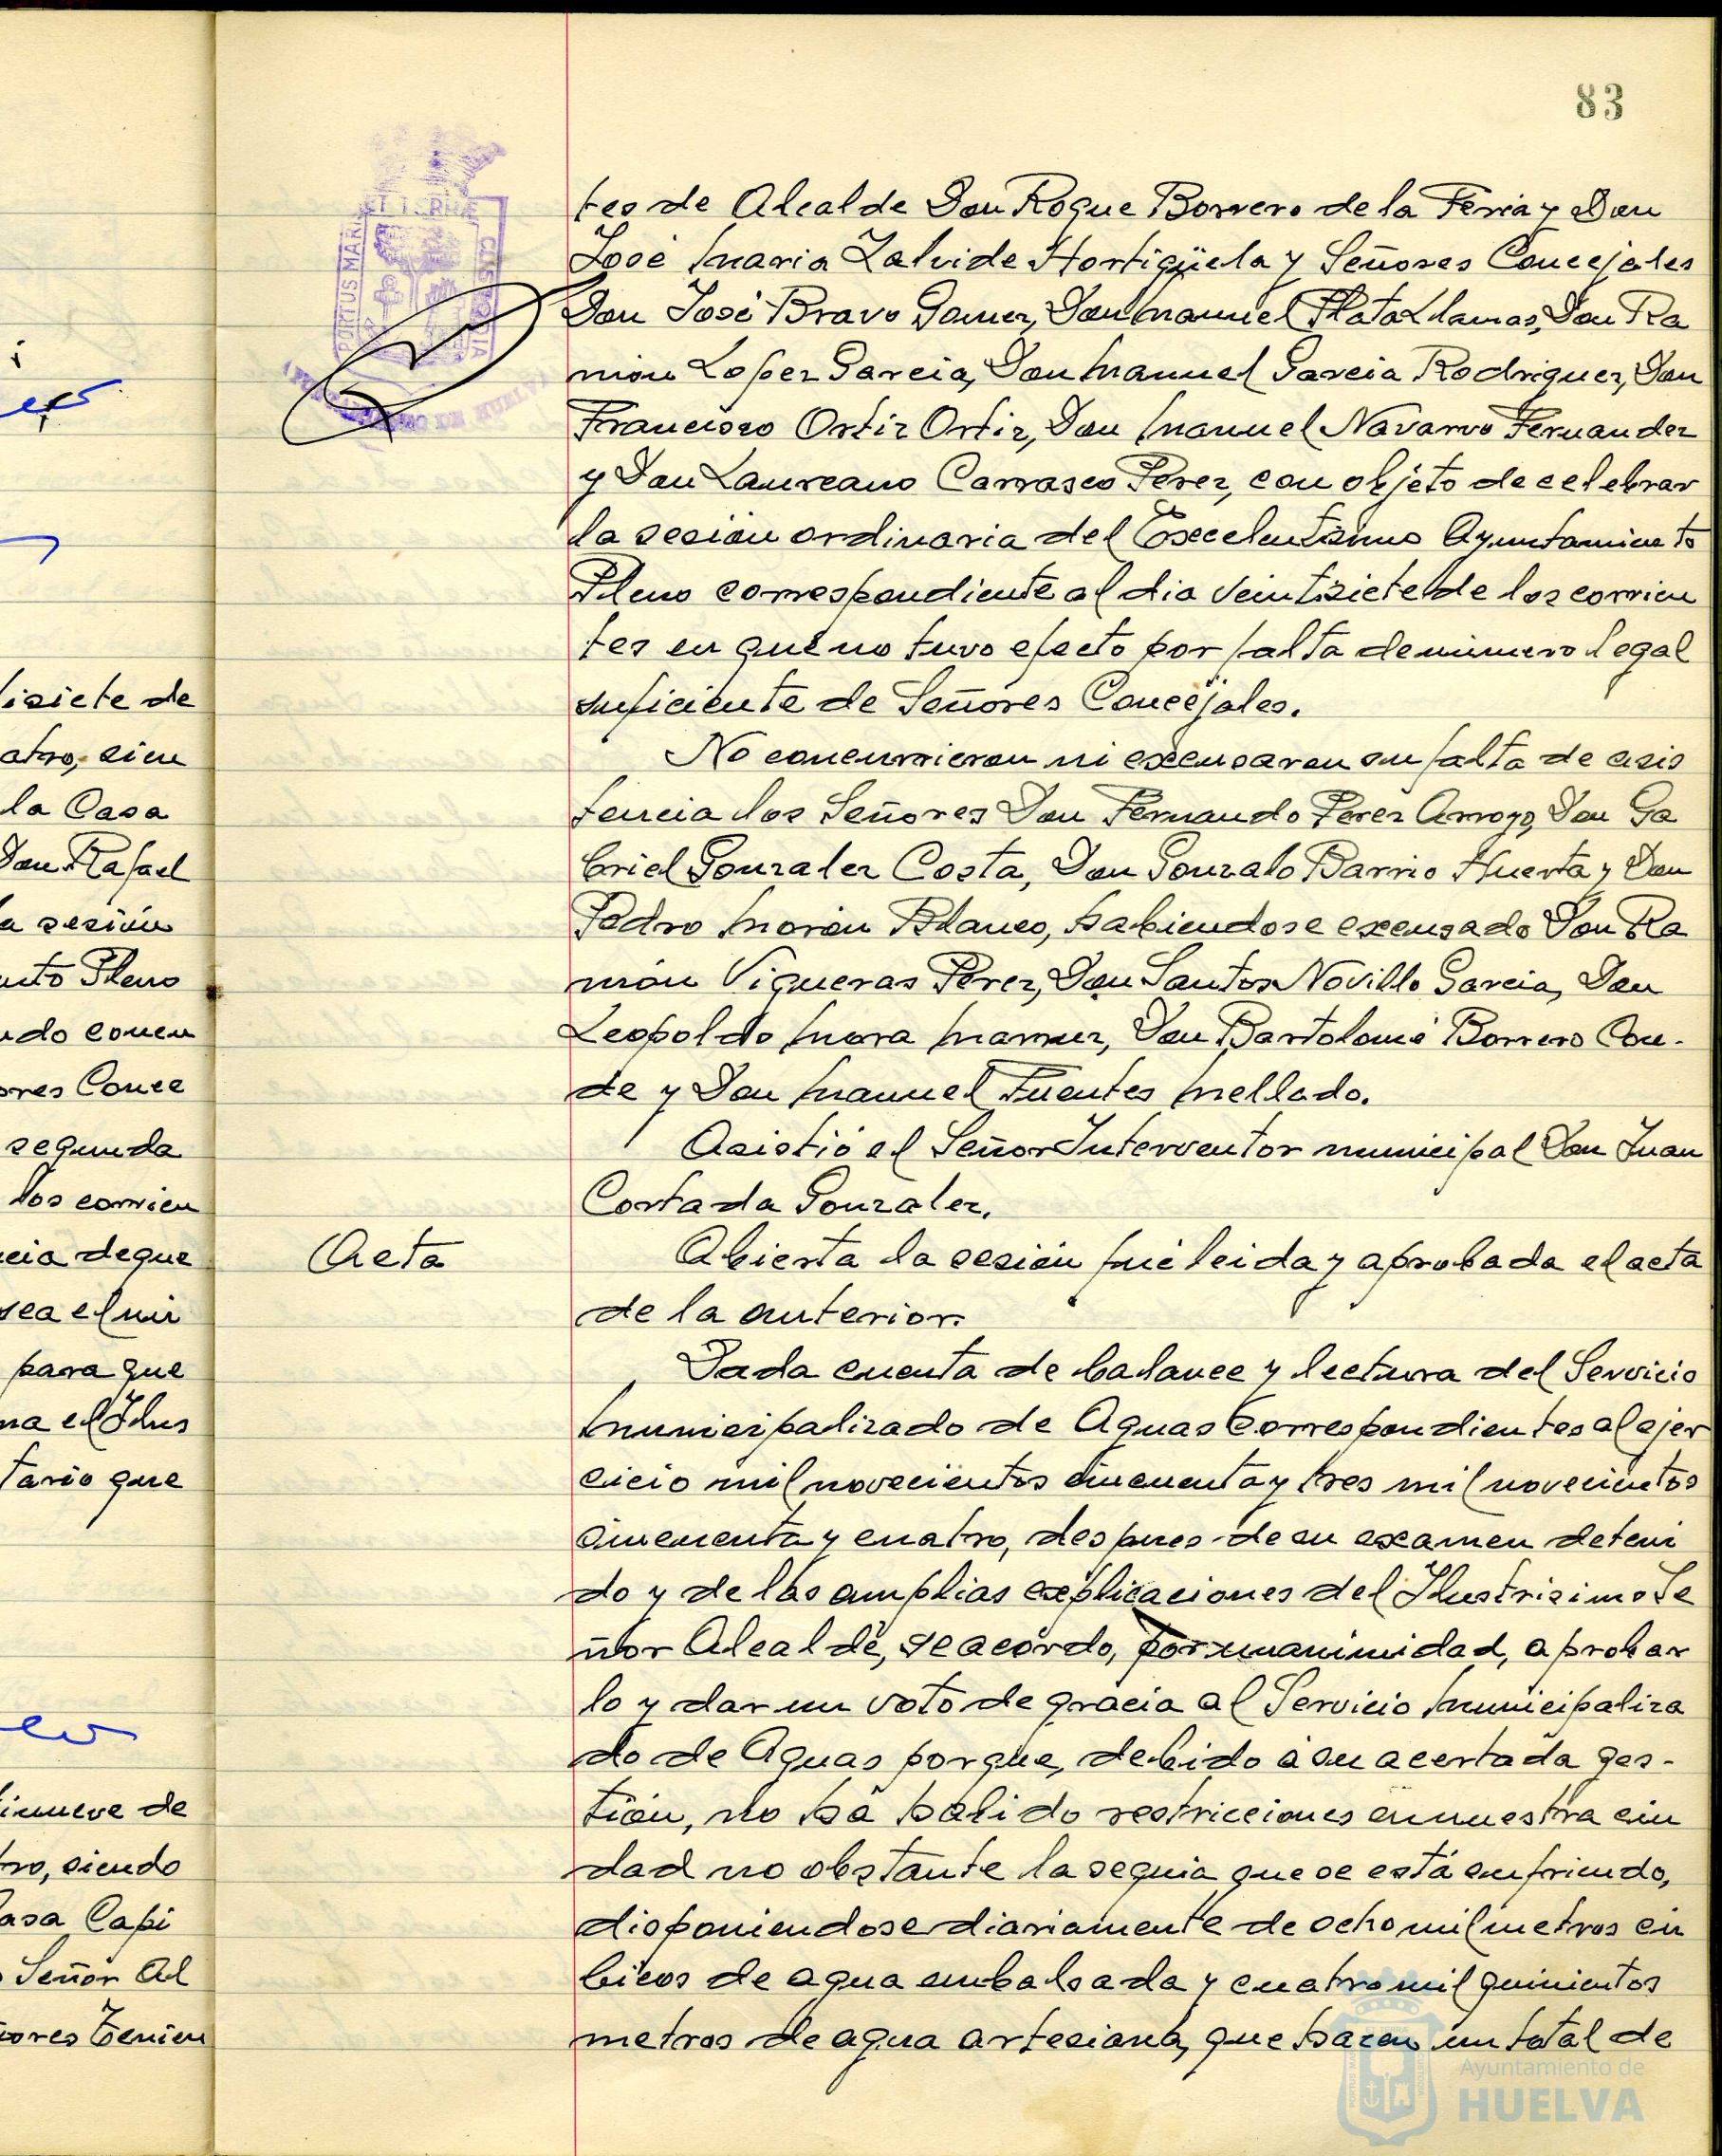 83
tes de Alcalde Don Roque Borrero de la Feria y Don
José Maria Zalvide Hortigüela y Señores Concejales
Don José Bravo Gomez, Don Manuel Plata Llamas, Don Ra
món Lopez Garcia, Don Manuel Garcia Rodriguez, Don
Francisco Ortiz Ortiz, Don Manuel Navarro Fernandez
y Don Laureano Carrasco Perez, con objeto de celebrar
la sesión ordinaria del Excelentísimo Ayuntamiento
Pleno correspondiente al dia veintisiete de los corrien
tes en que no tuvo efecto por falta de número legal
suficiente de Señores Concejales.
No concurrieron ni excusaron su falta de asis
tencia los Señores Don Fernando Perez Arroyo, Don Ga
briel Gonzalez Costa, Don Gonzalo Barrio Huerta y Don
Pedro Morón Blanco, habiendose excusado Don Ra
món Vigueras Perez, Don Santos Novillo Garcia, Don
Leopoldo Mora Don Bartolomé Borrero Con-
de y Don Manuel Fuentes Mellado.
Asistió el Señor Interventor municipal Don Juan
Cortada Gonzalez.
Acta
Abierta la sesión fué leida y aprobada el acta
de la anterior.
Dada cuenta de balance y lectura del Servicio
Municipalizado de Aguas correspondientes al ejer
cicio mil novecientos cincuenta y tres mil novecientos
cincuenta y cuatro, despues de su examen deteni
do y de las amplias explicaciones del Ilustrisimo Se
ñor Alcalde, se acordo, por unanimidad, aprobar
lo y dar un voto de gracia al Servicio Municipaliza
do de Aguas porque, debido a su acertada ges-
tión, no há habido restricciones en nuestra ciu
dad no obstante la sequia que se está sufriendo,
disponiendose diariamente de ocho mil metros cú
bicos de agua embalsada y cuatro mil quinientos
metros de agua artesiana, que hacen un total de
PORTUS MARIS
ET TERRÆ
CUSTODIA
AYUNTAMIENTO DE HUELVA
isiete de
atro, sien
la Casa
Don Rafael
a sesión
nto Pleno
ndo concu
ores Conce
segunda
los corrien
cia de que
sea el nú
para que
ma el Ilus
tario que
inueve de
tro, siendo
Casa Capi
Señor Al
ñores Tenien
Ayuntamiento de
HUELVA